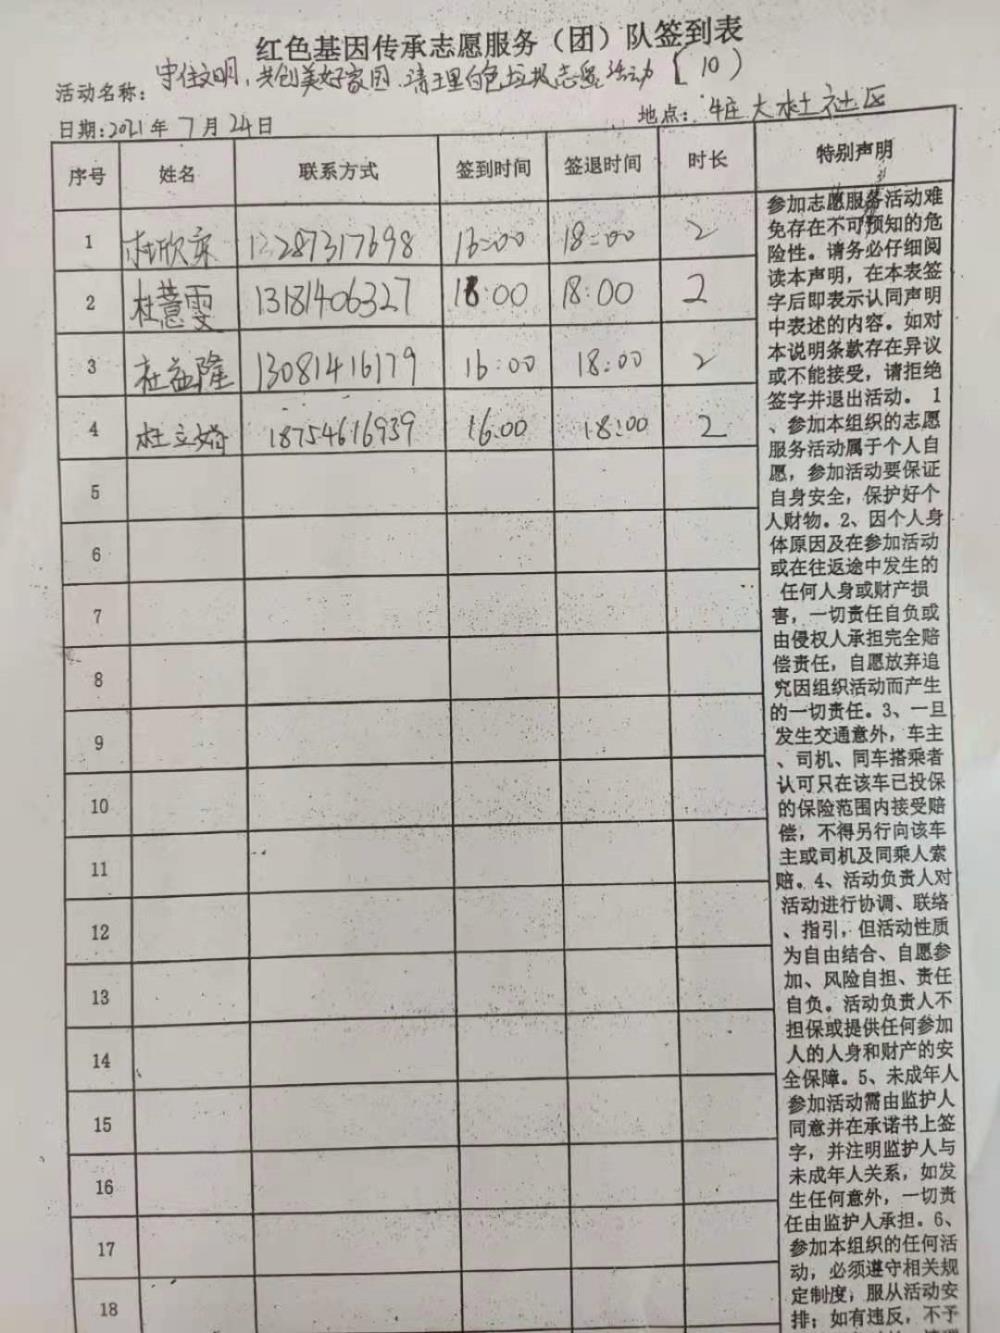 红色基因传承志愿服务（团）队签到表
活动名称：守住文明，共创美好家园．清理白色垃圾志愿活动（10）
日期：2021年7月24日
地点：大杜社区
序号 姓名 联系方式 签到时间 签退时间 时长 特别声明
1 杜欣 13287317698 16:00 18:00 2
2 杜慧雯 13181406327 16:00 18:00 2
3 杜益隆 13081416179 16:00 18:00 2
4 杜立 18754616939 16:00 18:00 2
5
6
7
8
9
10
11
12
13
14
15
16
17
18
参加志愿服务活动难
免存在不可预知的危
险性。请务必仔细阅
读本声明，在本表签
字后即表示认同声明
中表述的内容。如对
本说明条款存在异议
或不能接受，请拒绝
签字并退出活动。 1
、参加本组织的志愿
服务活动属于个人自
愿，参加活动要保证
自身安全，保护好个
人财物。2、因个人身
体原因及在参加活动
或在往返途中发生的
任何人身或财产损
害，一切责任自负或
由侵权人承担完全赔
偿责任，自愿放弃追
究因组织活动而产生
的一切责任。3、一旦
发生交通意外，车主
、司机、同车搭乘者
认可只在该车已投保
的保险范围内接受赔
偿，不得另行向该车
主或司机及同乘人索
赔。4、活动负责人对
活动进行协调、联络
、指引，但活动性质
为自由结合、自愿参
加、风险自担、责任
自负。活动负责人不
担保或提供任何参加
人的人身和财产的安
全保障。5、未成年人
参加活动需由监护人
同意并在承诺书上签
字，并注明监护人与
未成年人关系，如发
生任何意外，一切责
任由监护人承担。6、
参加本组织的任何活
动，必须遵守相关规
定制度，服从活动安
排；如有违反，不予